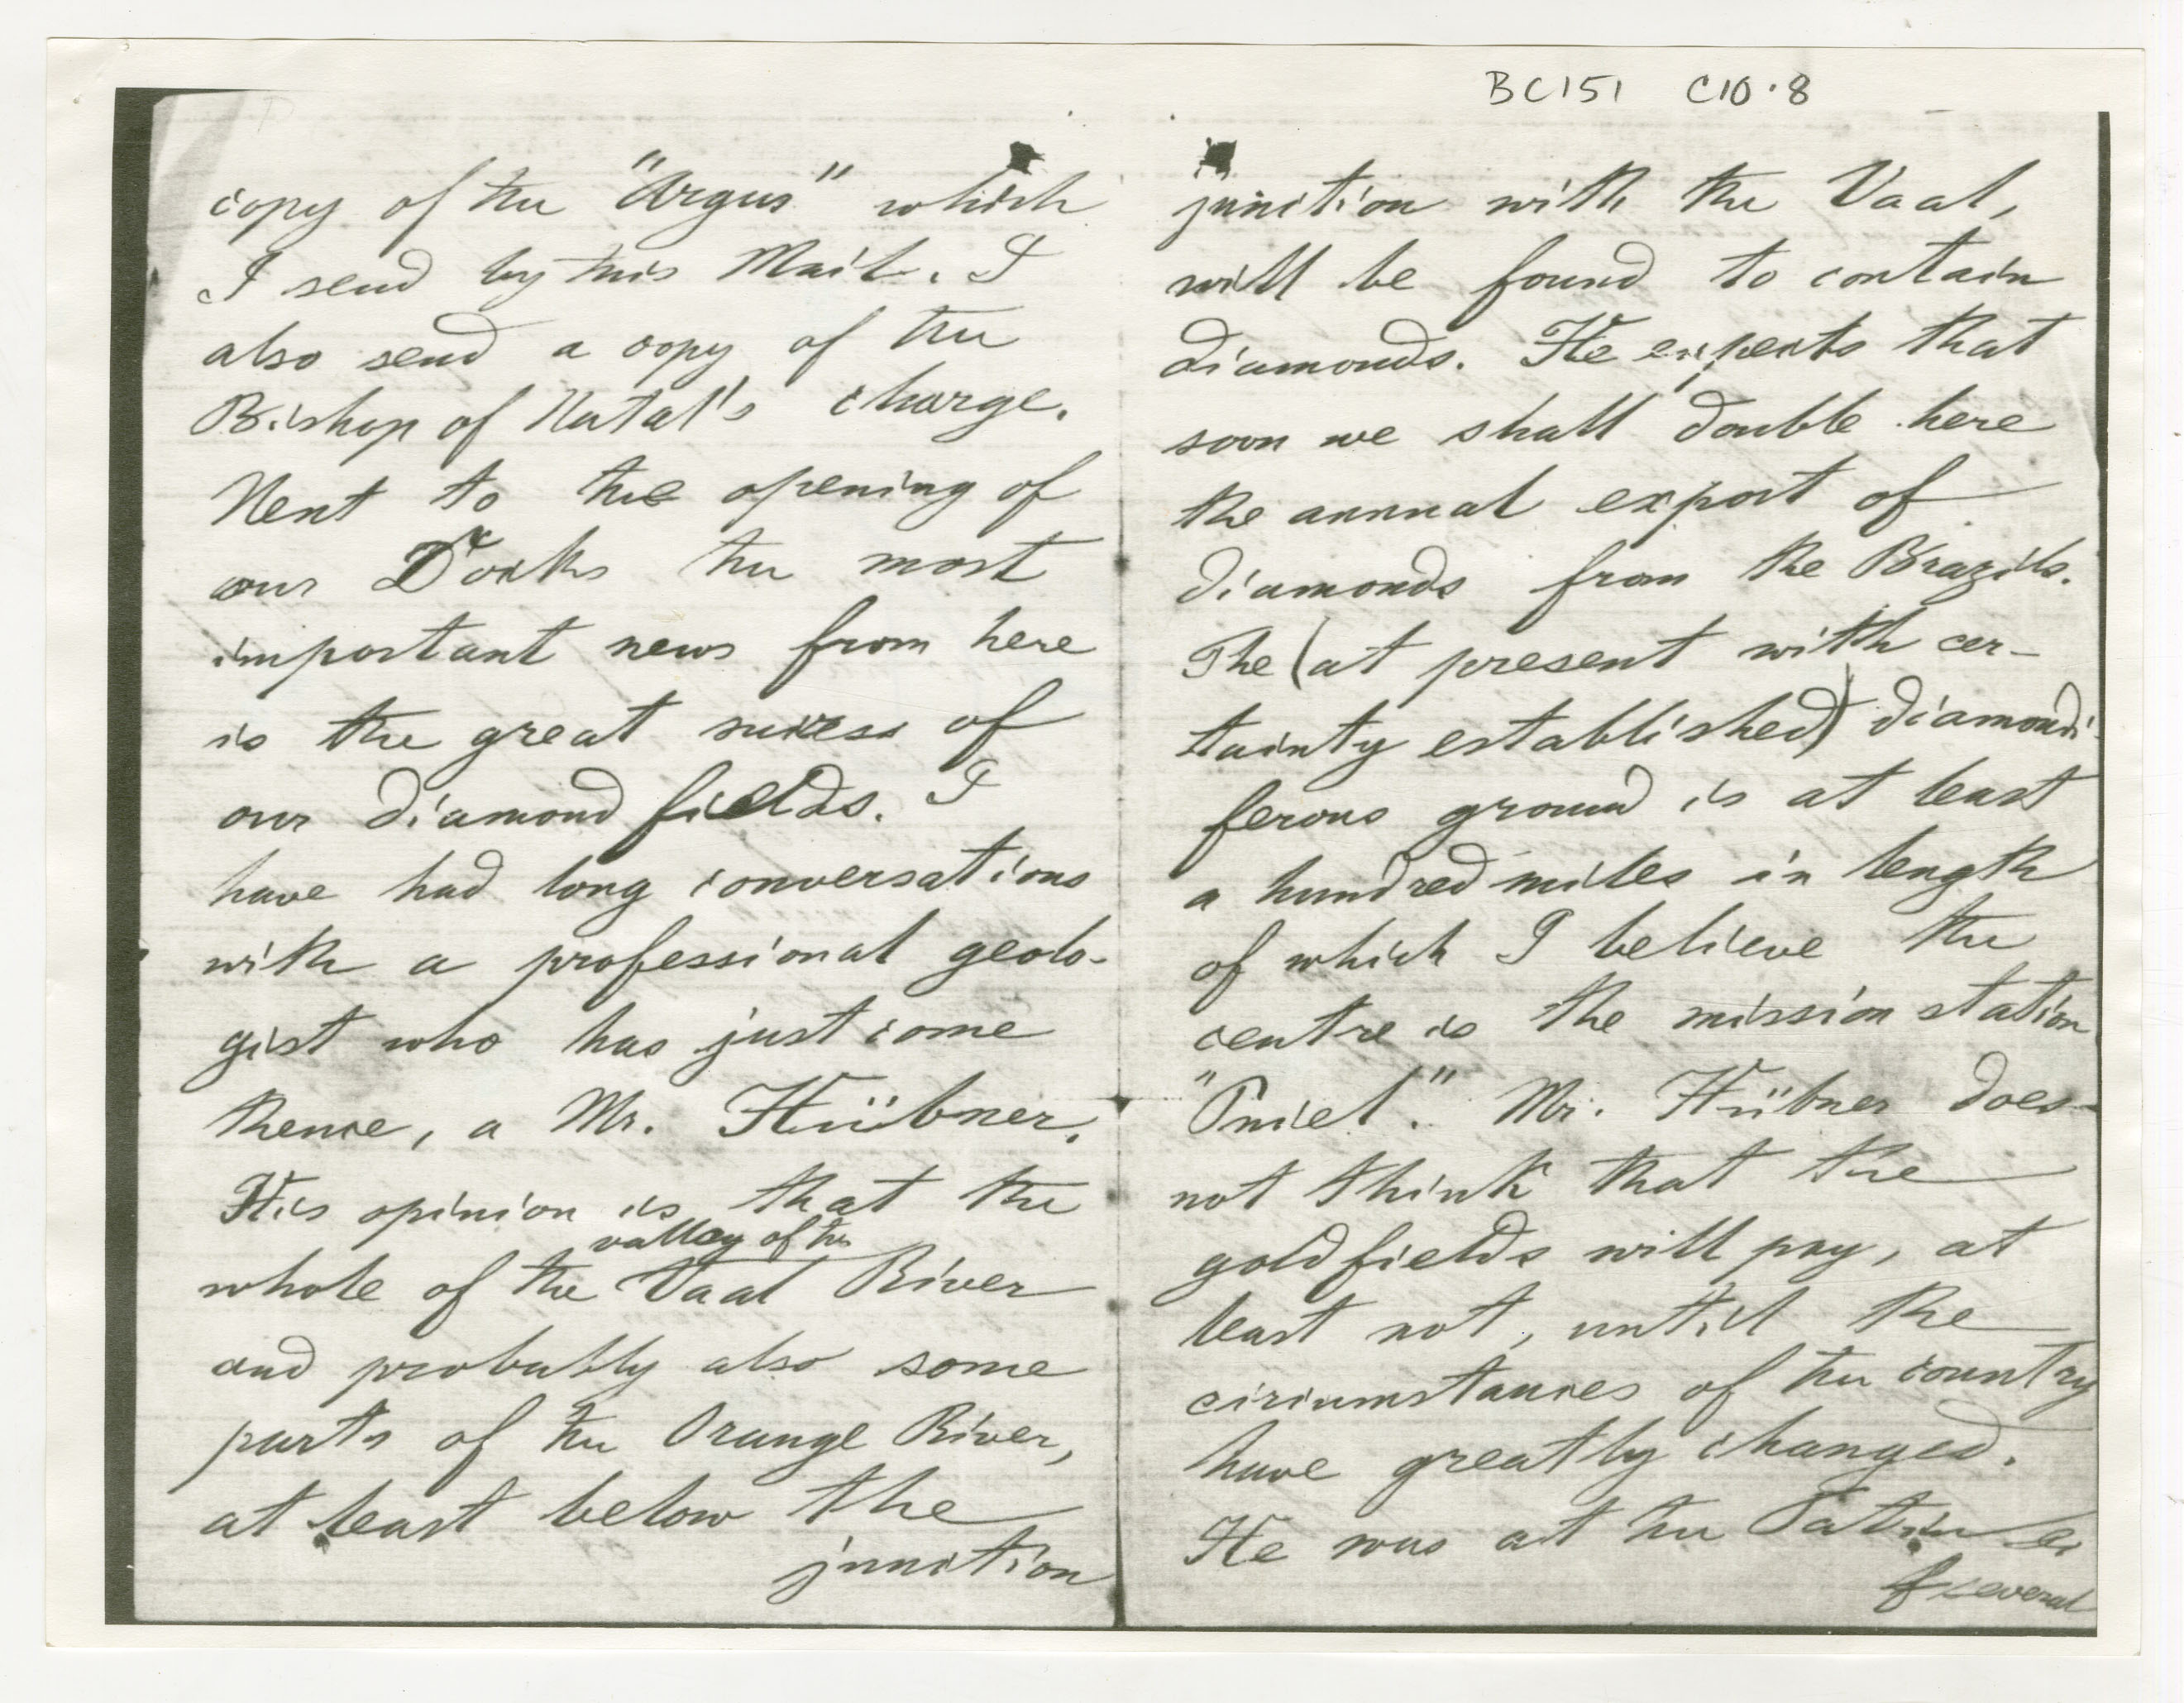 BC151 C10.8
copy of the "Argus" which
I send by this Mail. I
also send a copy of the
Bishop of Natal's charge.
Next to the opening of
our Docks the most
important news from here
is the great success of
our diamond fields. I
have had long conversations
with a professional geolo-
gist who has just come
thence, a Mr. Hübner.
His opinion is that the
valley of the
whole of the Vaal River
and probably also some
parts of the Orange River,
at least below the
junction
junction with the Vaal,
will be found to contain
diamonds. He expects that
soon we shall double here
the annual export of
diamonds from the Brazils.
The (at present with cer-
tainty established) diamondi-
ferous ground is at least
a hundred miles in length
of which I believe the
centre is the mission station
"Pniel". Mr. Hübner does
not think that the
goldfields will pay, at
least not, until the
circumstances of the country
have greatly changed.
He was at the Tatin
several